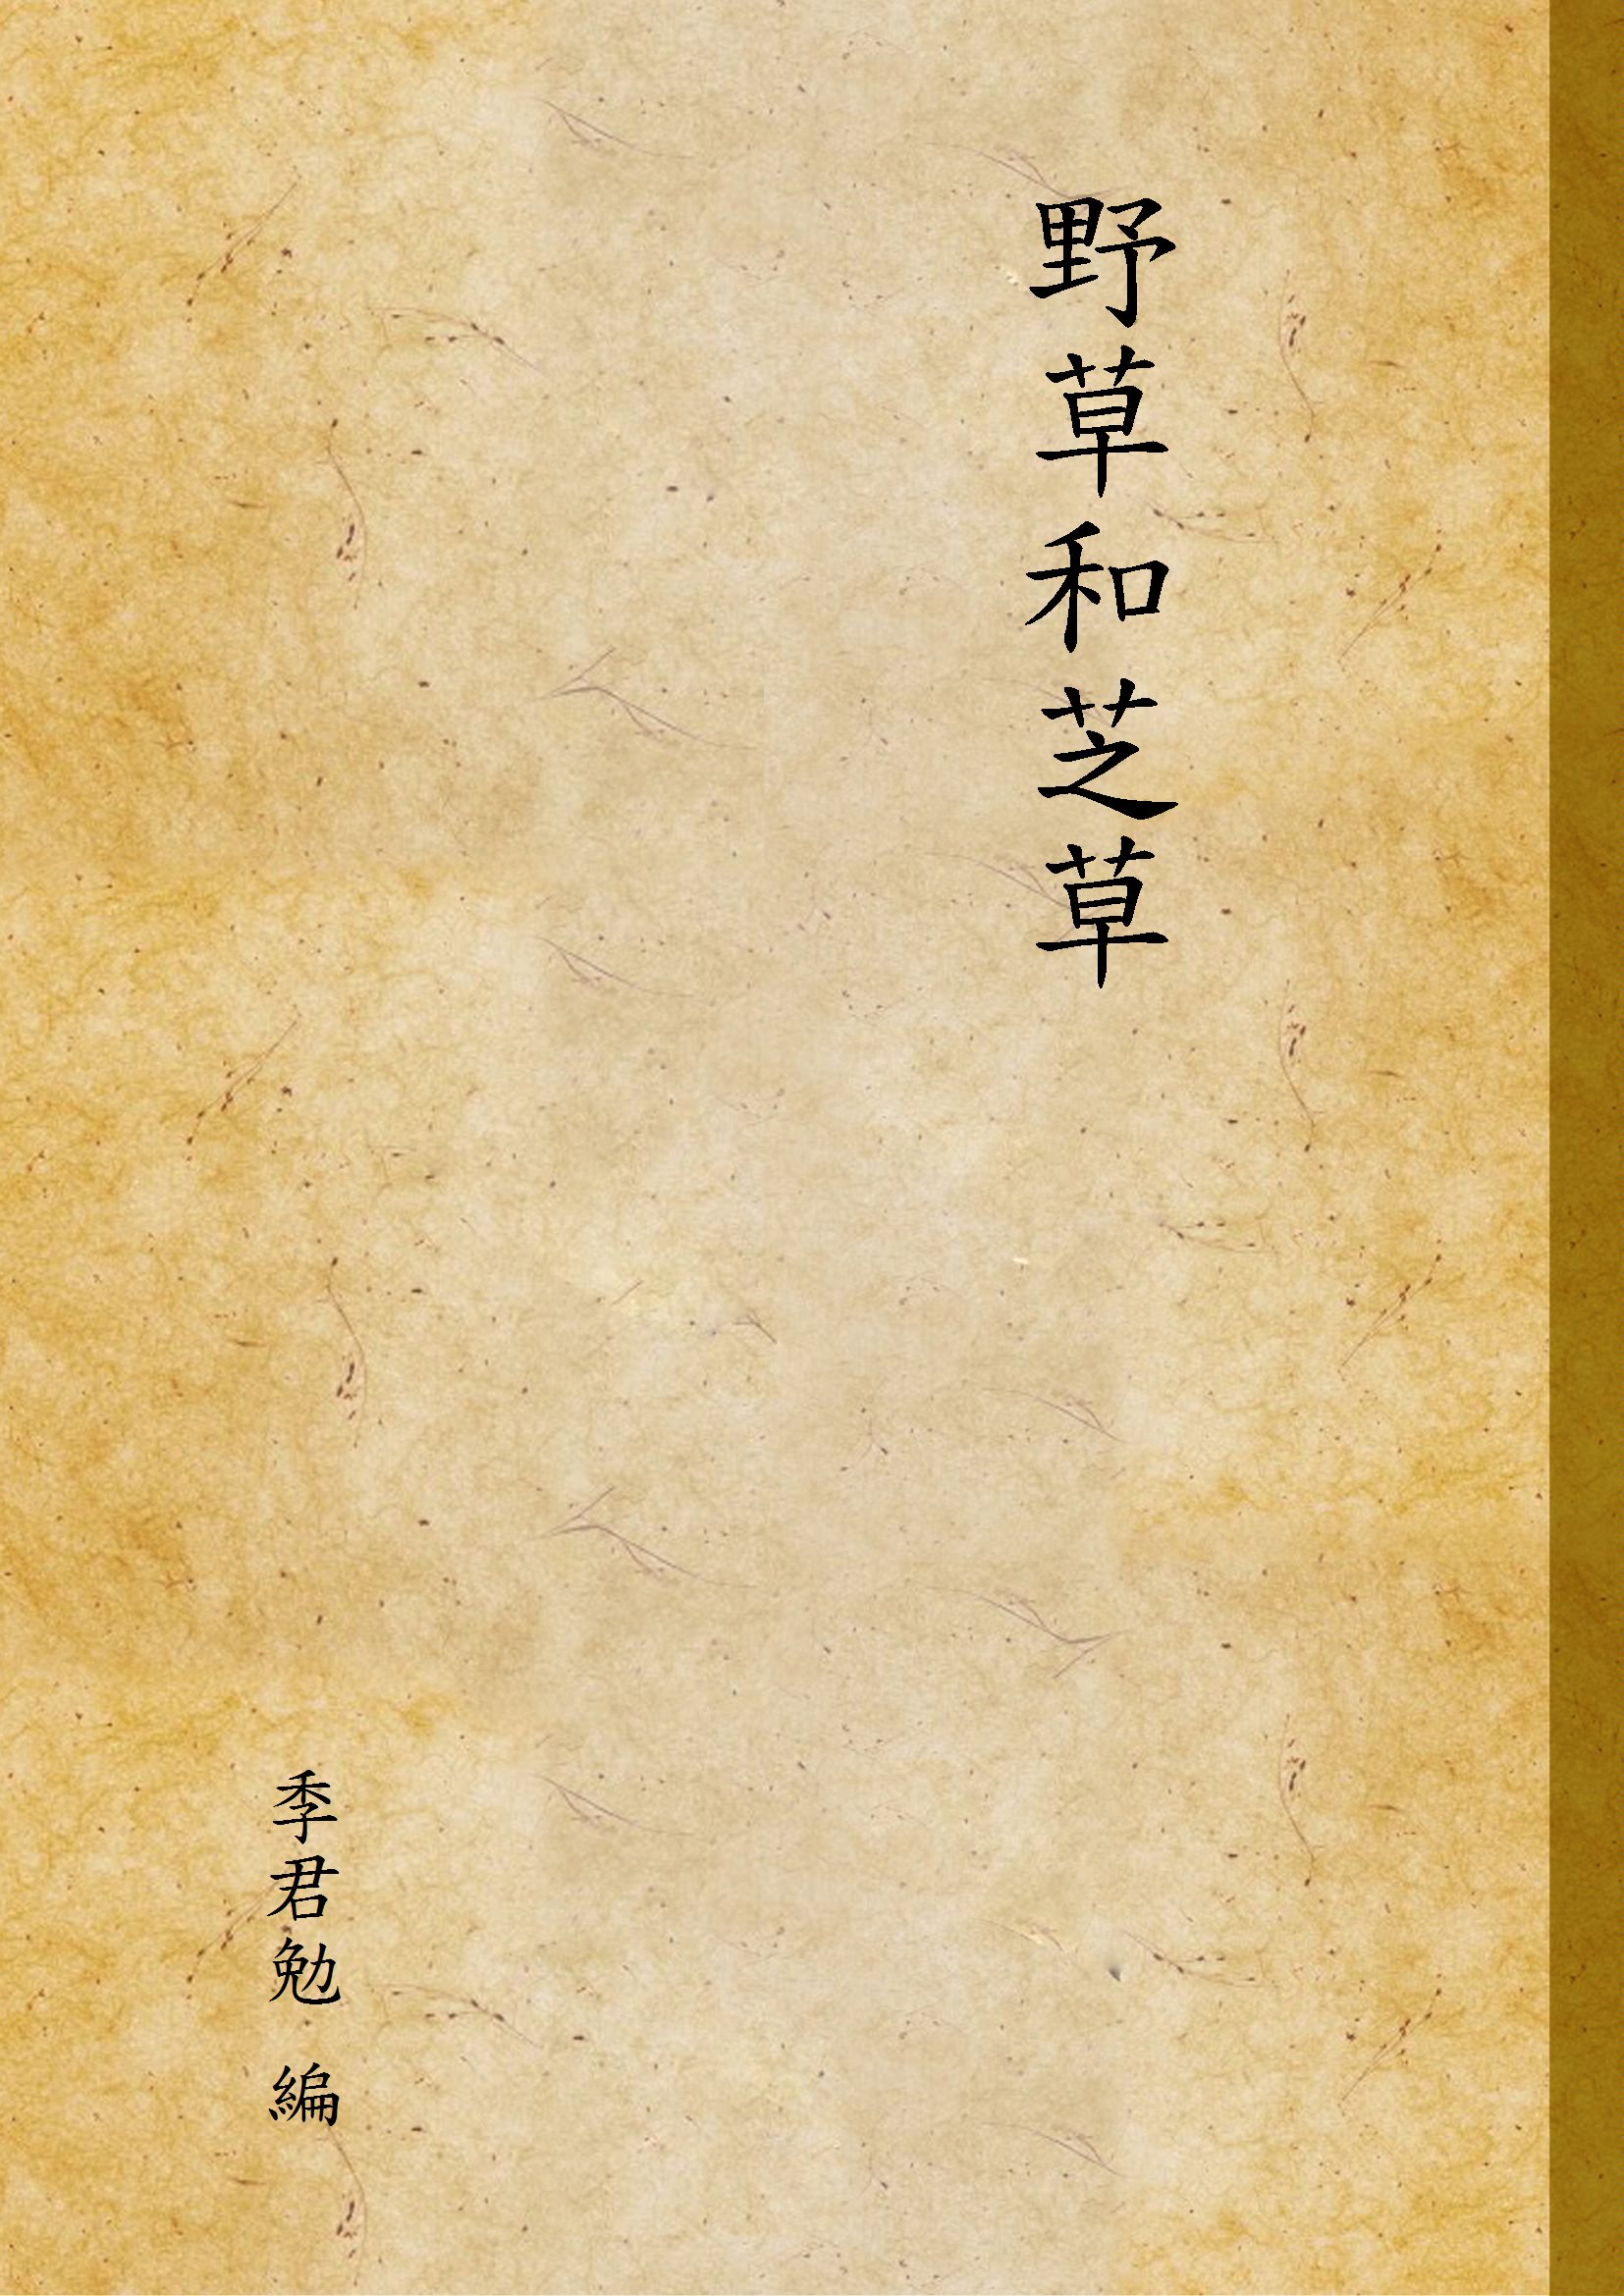 野草和芝草
季君勉 編